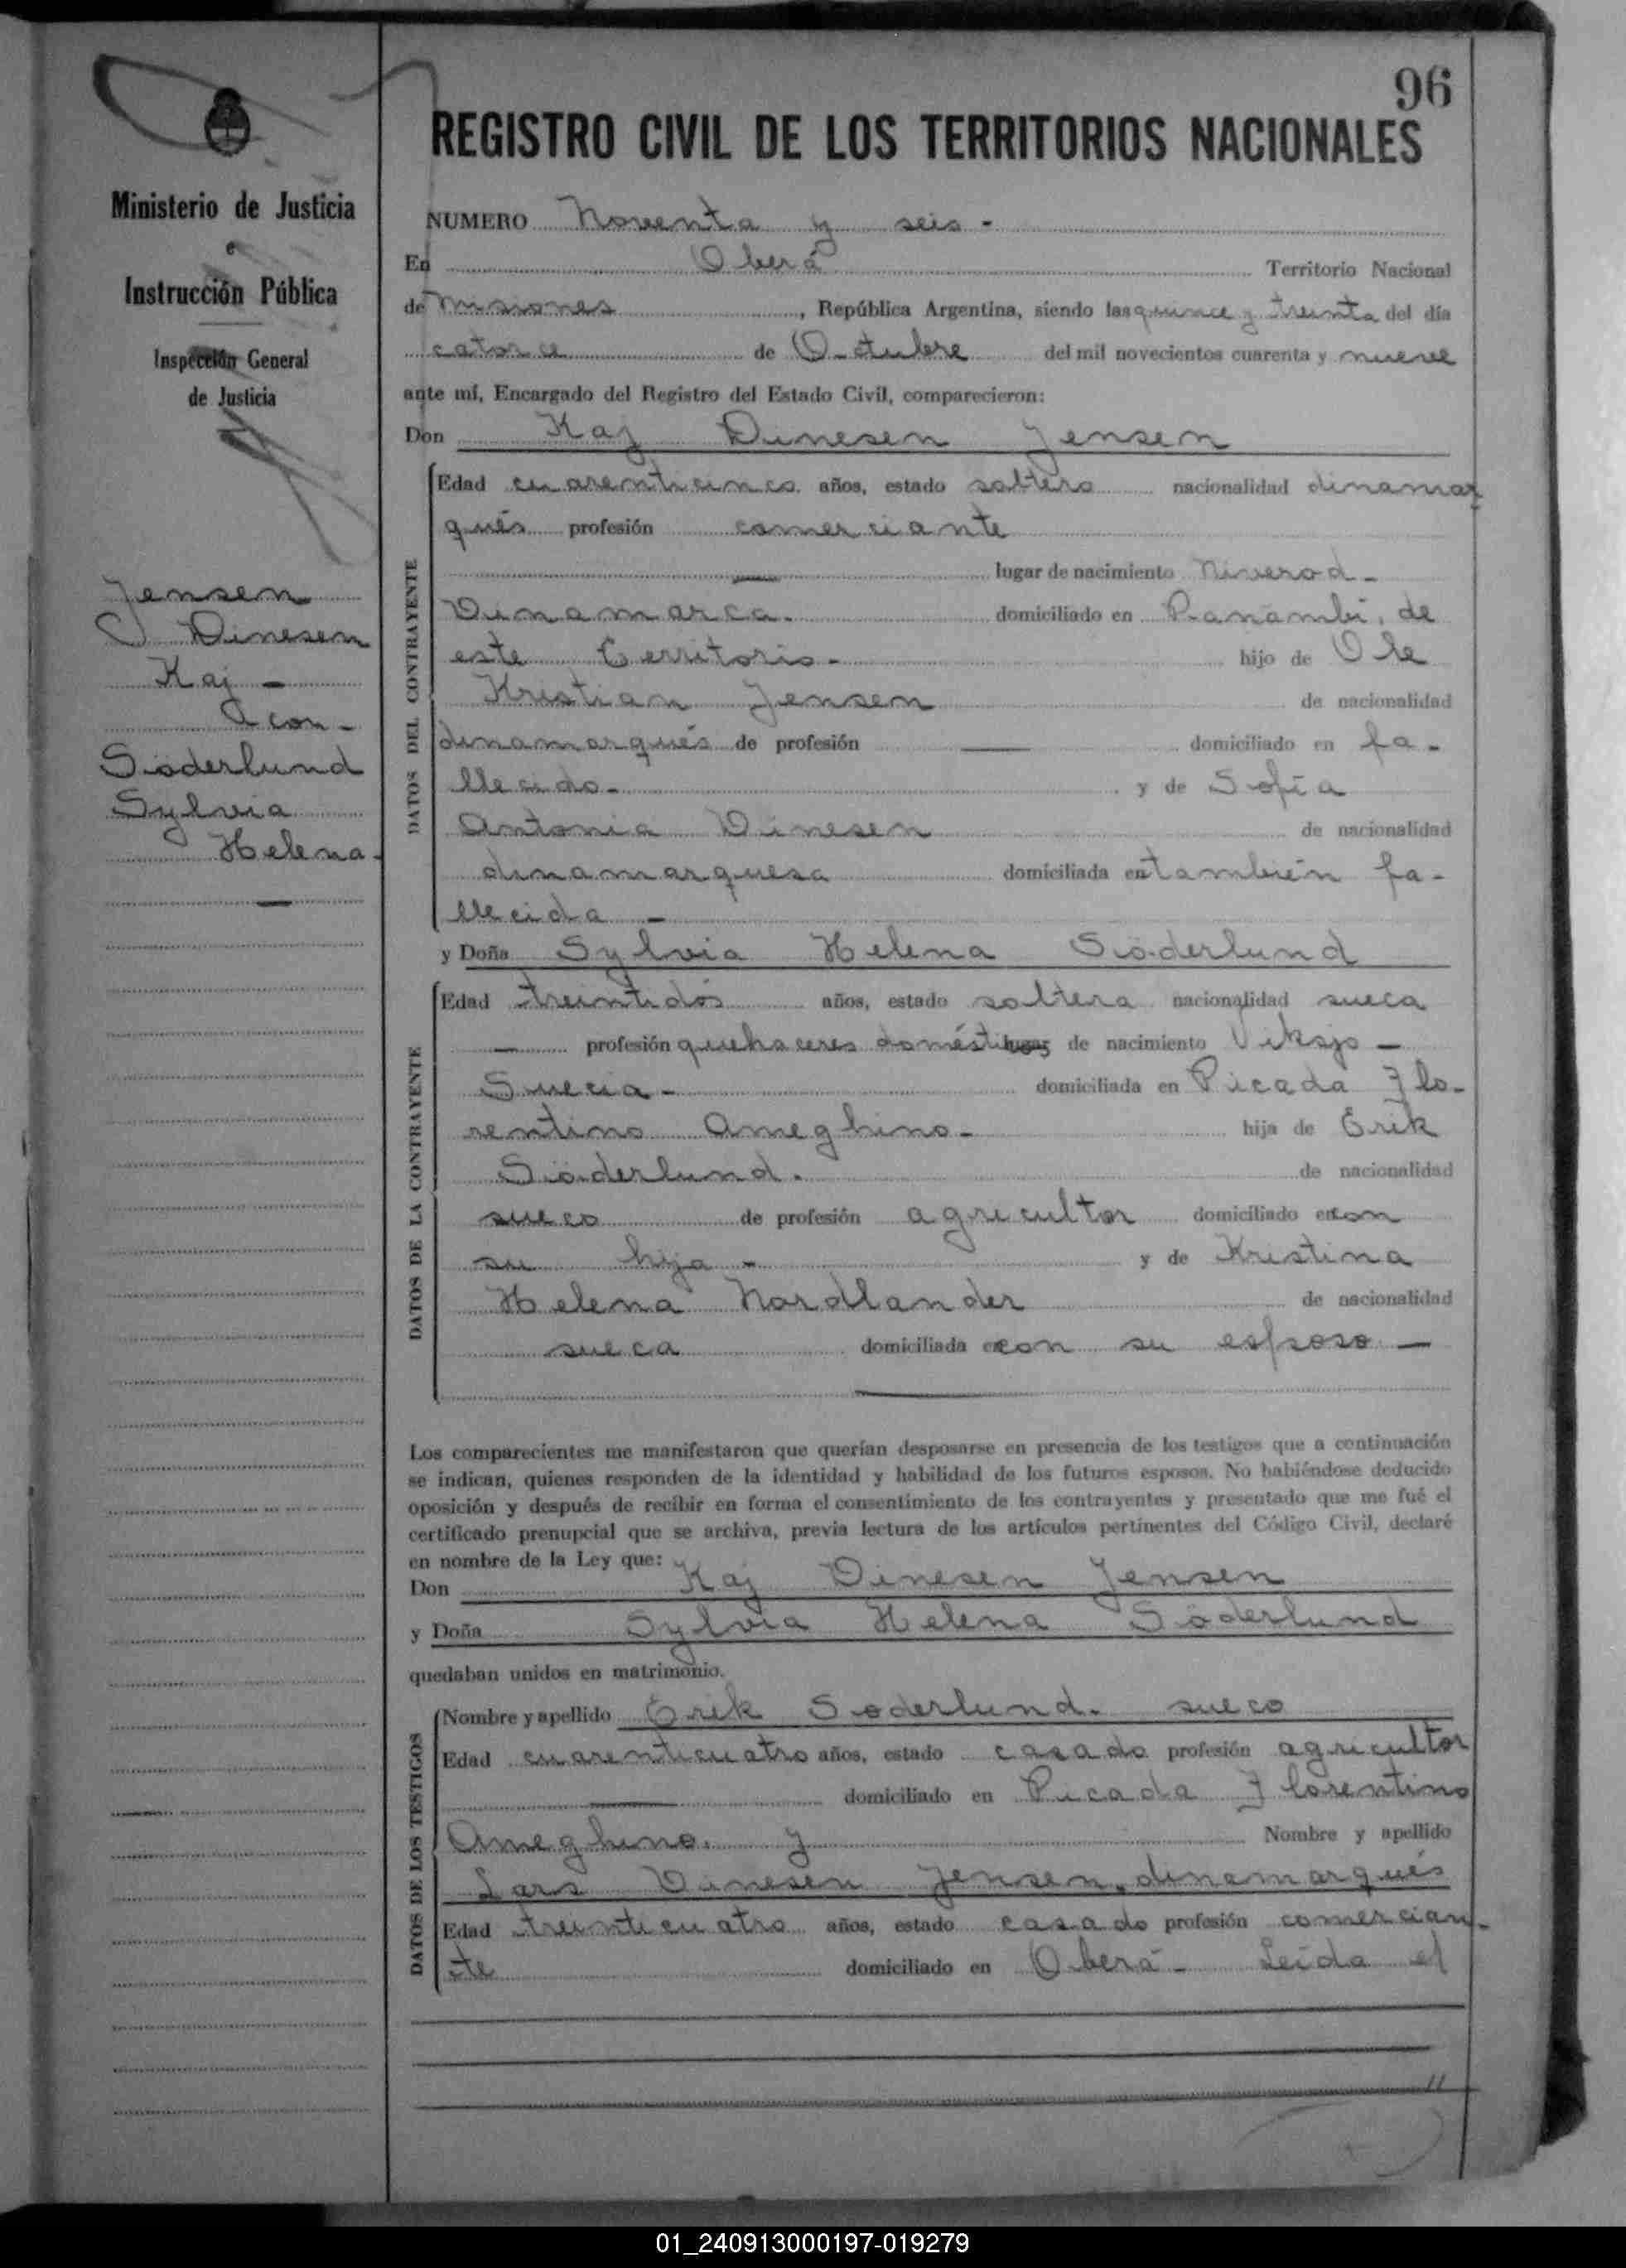 96
REGISTRO CIVIL DE LOS TERRITORIOS NACIONALES
Ministerio de Justicia
e
Instrucción Pública
Inspección General
de Justicia
Jensen
Dinesen
Kaj -
con -
Söderlund
Sylvia
Helena -
NUMERO Noventa y seis -
En Oberá Territorio Nacional
de Misiones, República Argentina, siendo las quince y treinta del día
catorce de Octubre del mil novecientos cuarenta y nueve
ante mí, Encargado del Registro del Estado Civil, comparecieron:
Don Kaj Dinesen Jensen
DATOS DEL CONTRAYENTE
Edad cuarenticinco años, estado soltero nacionalidad dinamar
qués profesión comerciante
lugar de nacimiento Niverod -
Dinamarca. domiciliado en Panambí, de
este Territorio - hijo de Ole
Kristian Jensen de nacionalidad
dinamarqués de profesión — domiciliado en fa-
llecido - y de Sofía
Antonia Dinesen de nacionalidad
dinamarquesa domiciliada en también fa-
llecida -
y Doña Sylvia Helena Söderlund
DATOS DE LA CONTRAYENTE
Edad treintidós años, estado soltera nacionalidad sueca
— profesión quehaceres domésticos lugar de nacimiento Viksjo -
Suecia - domiciliada en Picada Flo-
rentino Ameghino - hija de Erik
Söderlund. de nacionalidad
sueco de profesión agricultor domiciliado en con
su hija - y de Kristina
Helena Nordlander de nacionalidad
sueca domiciliada en con su esposo —
Los comparecientes me manifestaron que querían desposarse en presencia de los testigos que a continuación
se indican, quienes responden de la identidad y habilidad de los futuros esposos. No habiéndose deducido
oposición y después de recibir en forma el consentimiento de los contrayentes y presentado que me fué el
certificado prenupcial que se archiva, previa lectura de los artículos pertinentes del Código Civil, declaré
en nombre de la Ley que:
Don Kaj Dinesen Jensen
y Doña Sylvia Helena Söderlund
quedaban unidos en matrimonio.
DATOS DE LOS TESTIGOS
Nombre y apellido Erik Soderlund. sueco
Edad cuarenticuatro años, estado casado profesión agricultor
— domiciliado en Picada Florentino
Ameghino. y Nombre y apellido
Lars Dinesen Jensen, dinamarqués
Edad treinticuatro años, estado casado profesión comercian-
te domiciliado en Oberá - Leída el
01_240913000197-019279